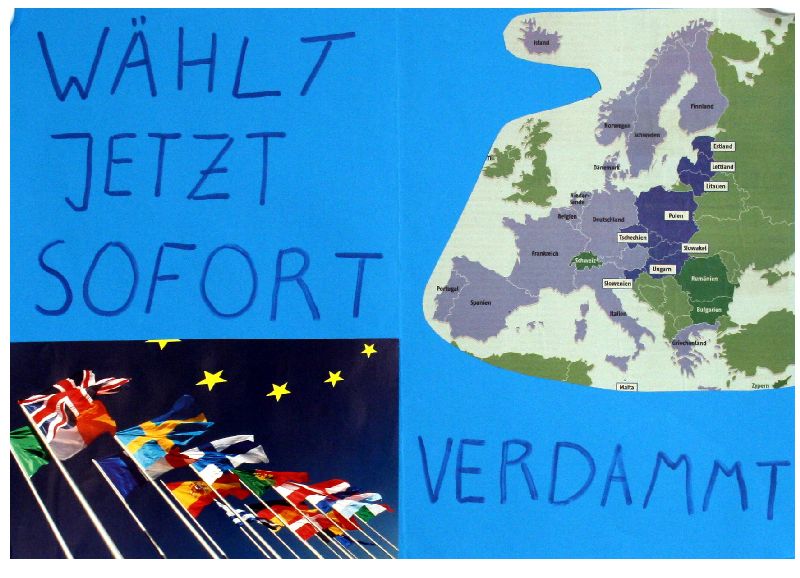 WÄHLT
JETZT
SOFORT
Island
Finnland
Norwegen
Schweden
Estland
Lettland
Dänemark
Litauen
Nieder-
lande
Belgien
Deutschland
Polen
Tschechien
Slowakei
Frankreich
Schweiz
Ungarn
Rumänien
Slowenien
Portugal
Spanien
Italien
Bulgarien
Griechenland
Malta
Zypern
VERDAMMT